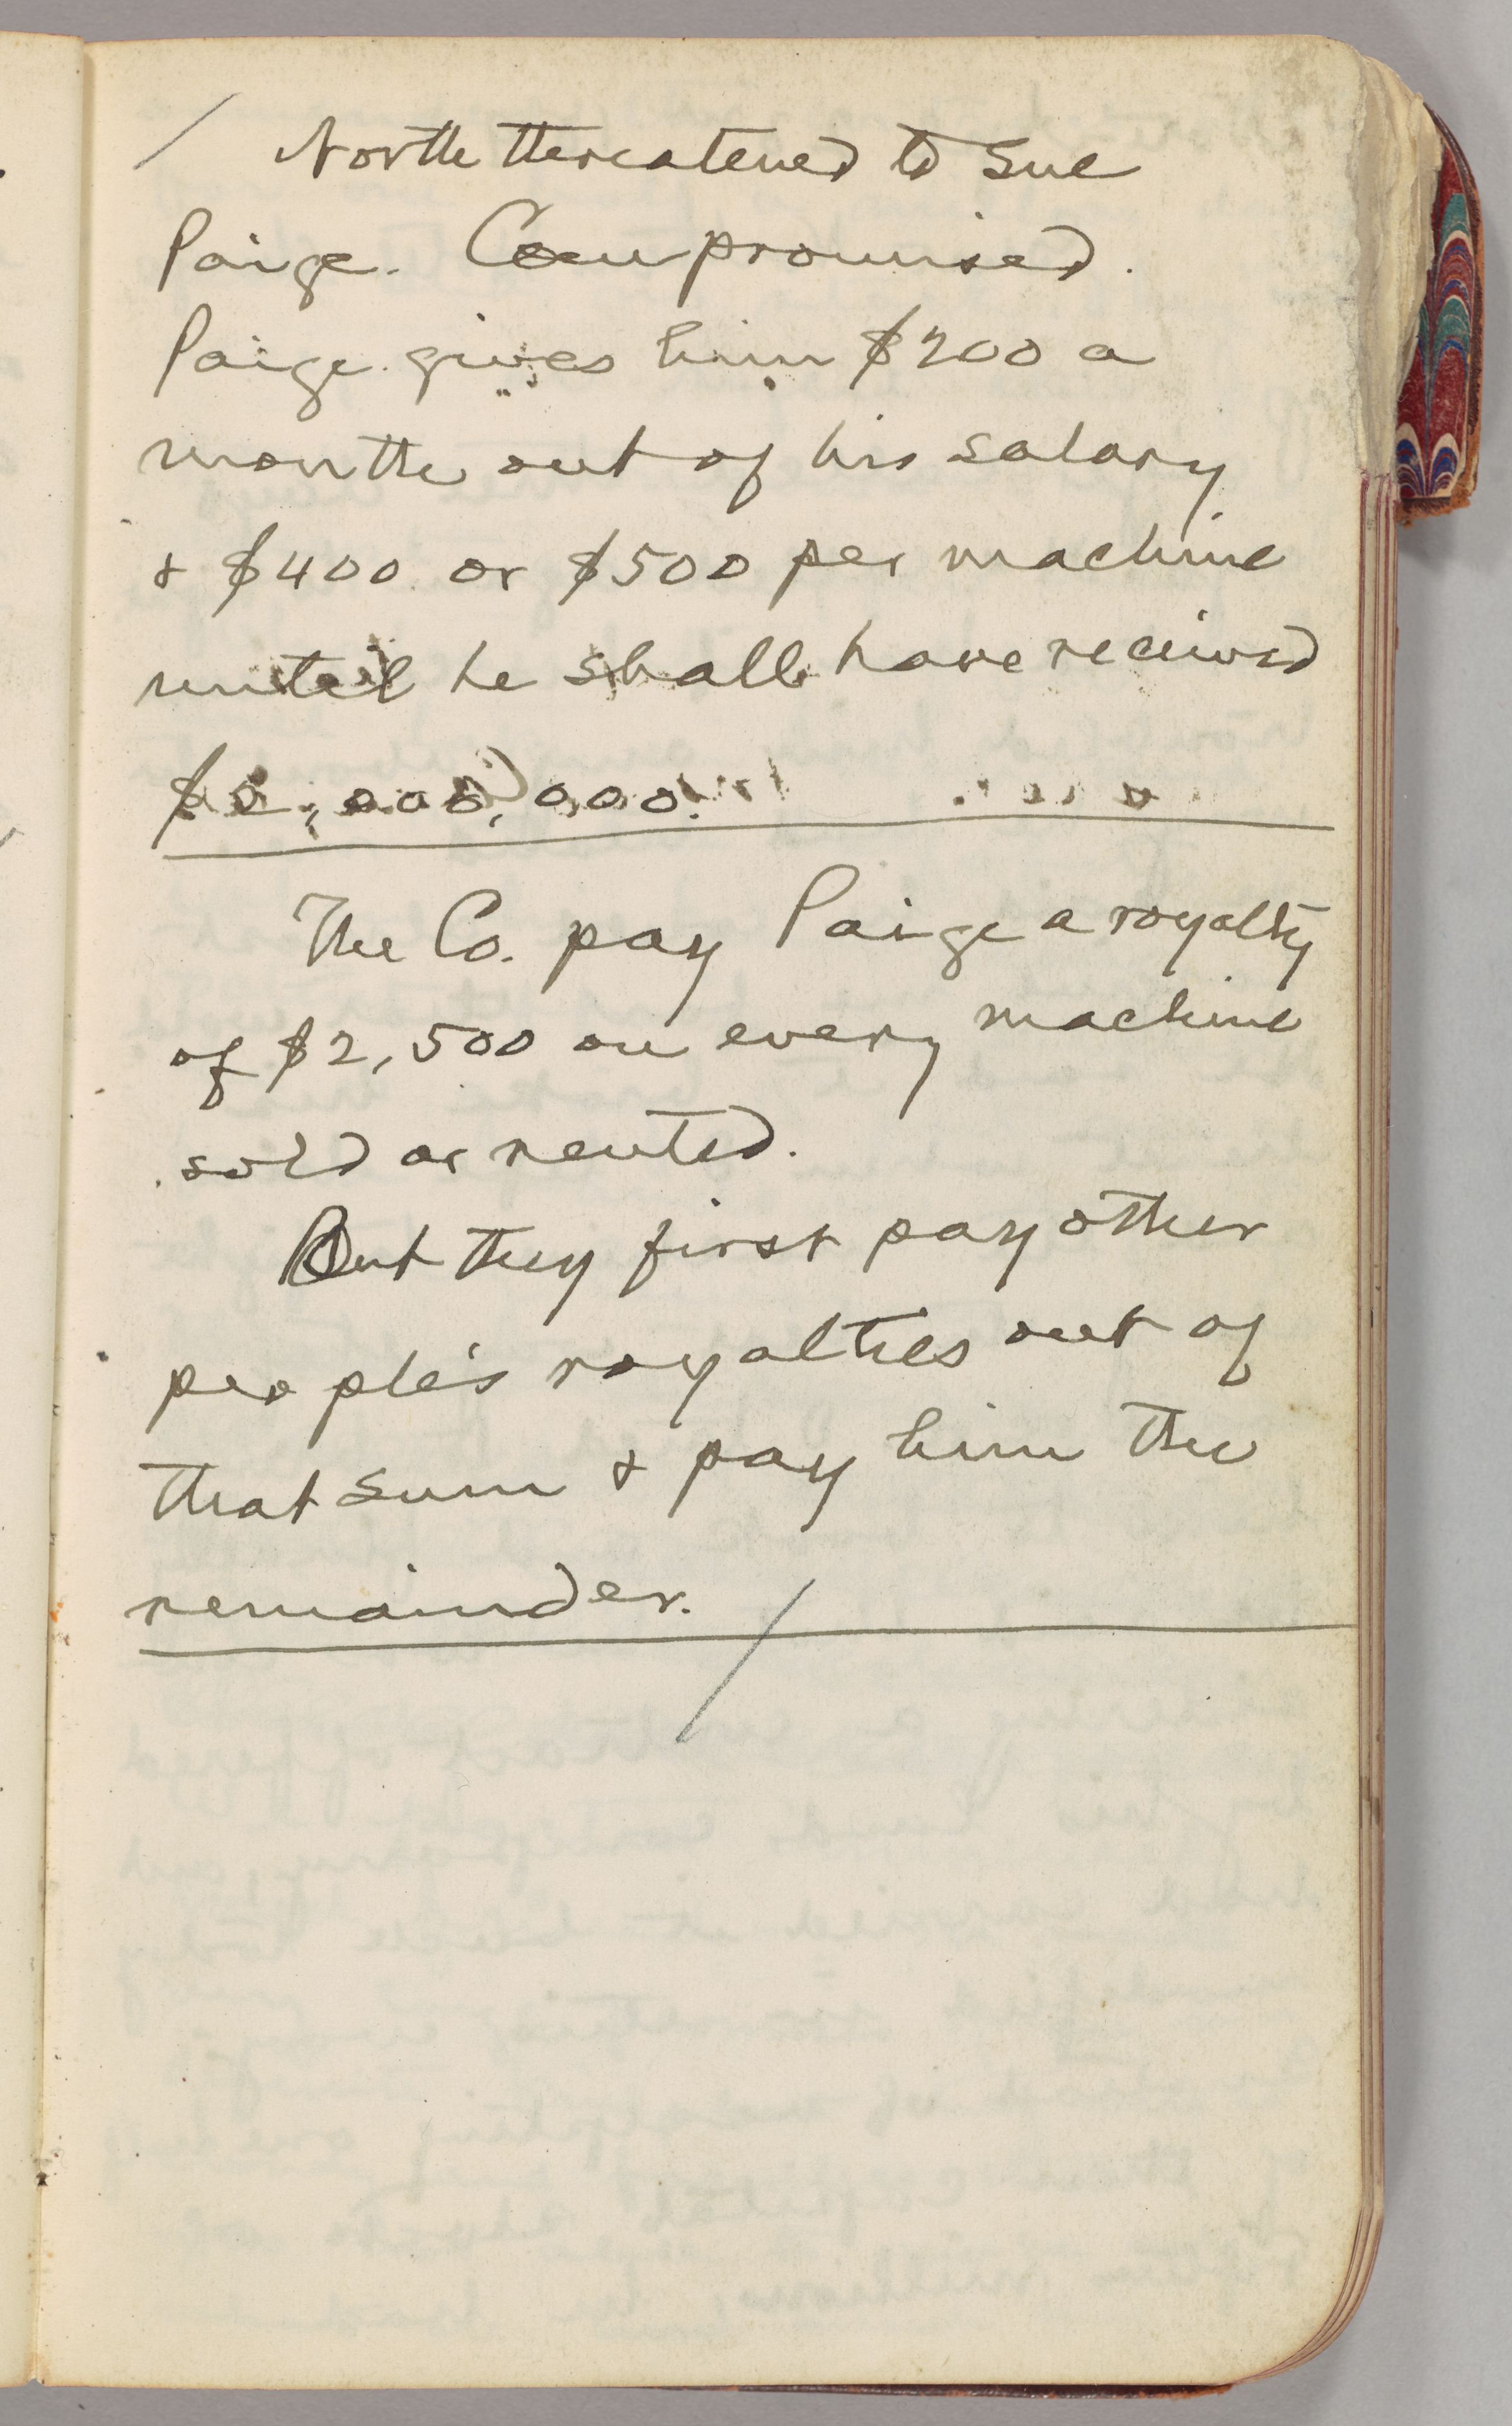 North threatened to sue
Paige. Compromised.
Paige gives him $200 a
month out of his salary
& $400 or $500 per machine
until he shall have received
$2,000,000.
The Co. pay Paige a royalty
of $2,500 on every machine
sold or rented.
But they first pay other
people's royalties out of
that sum & pay him the
remainder.